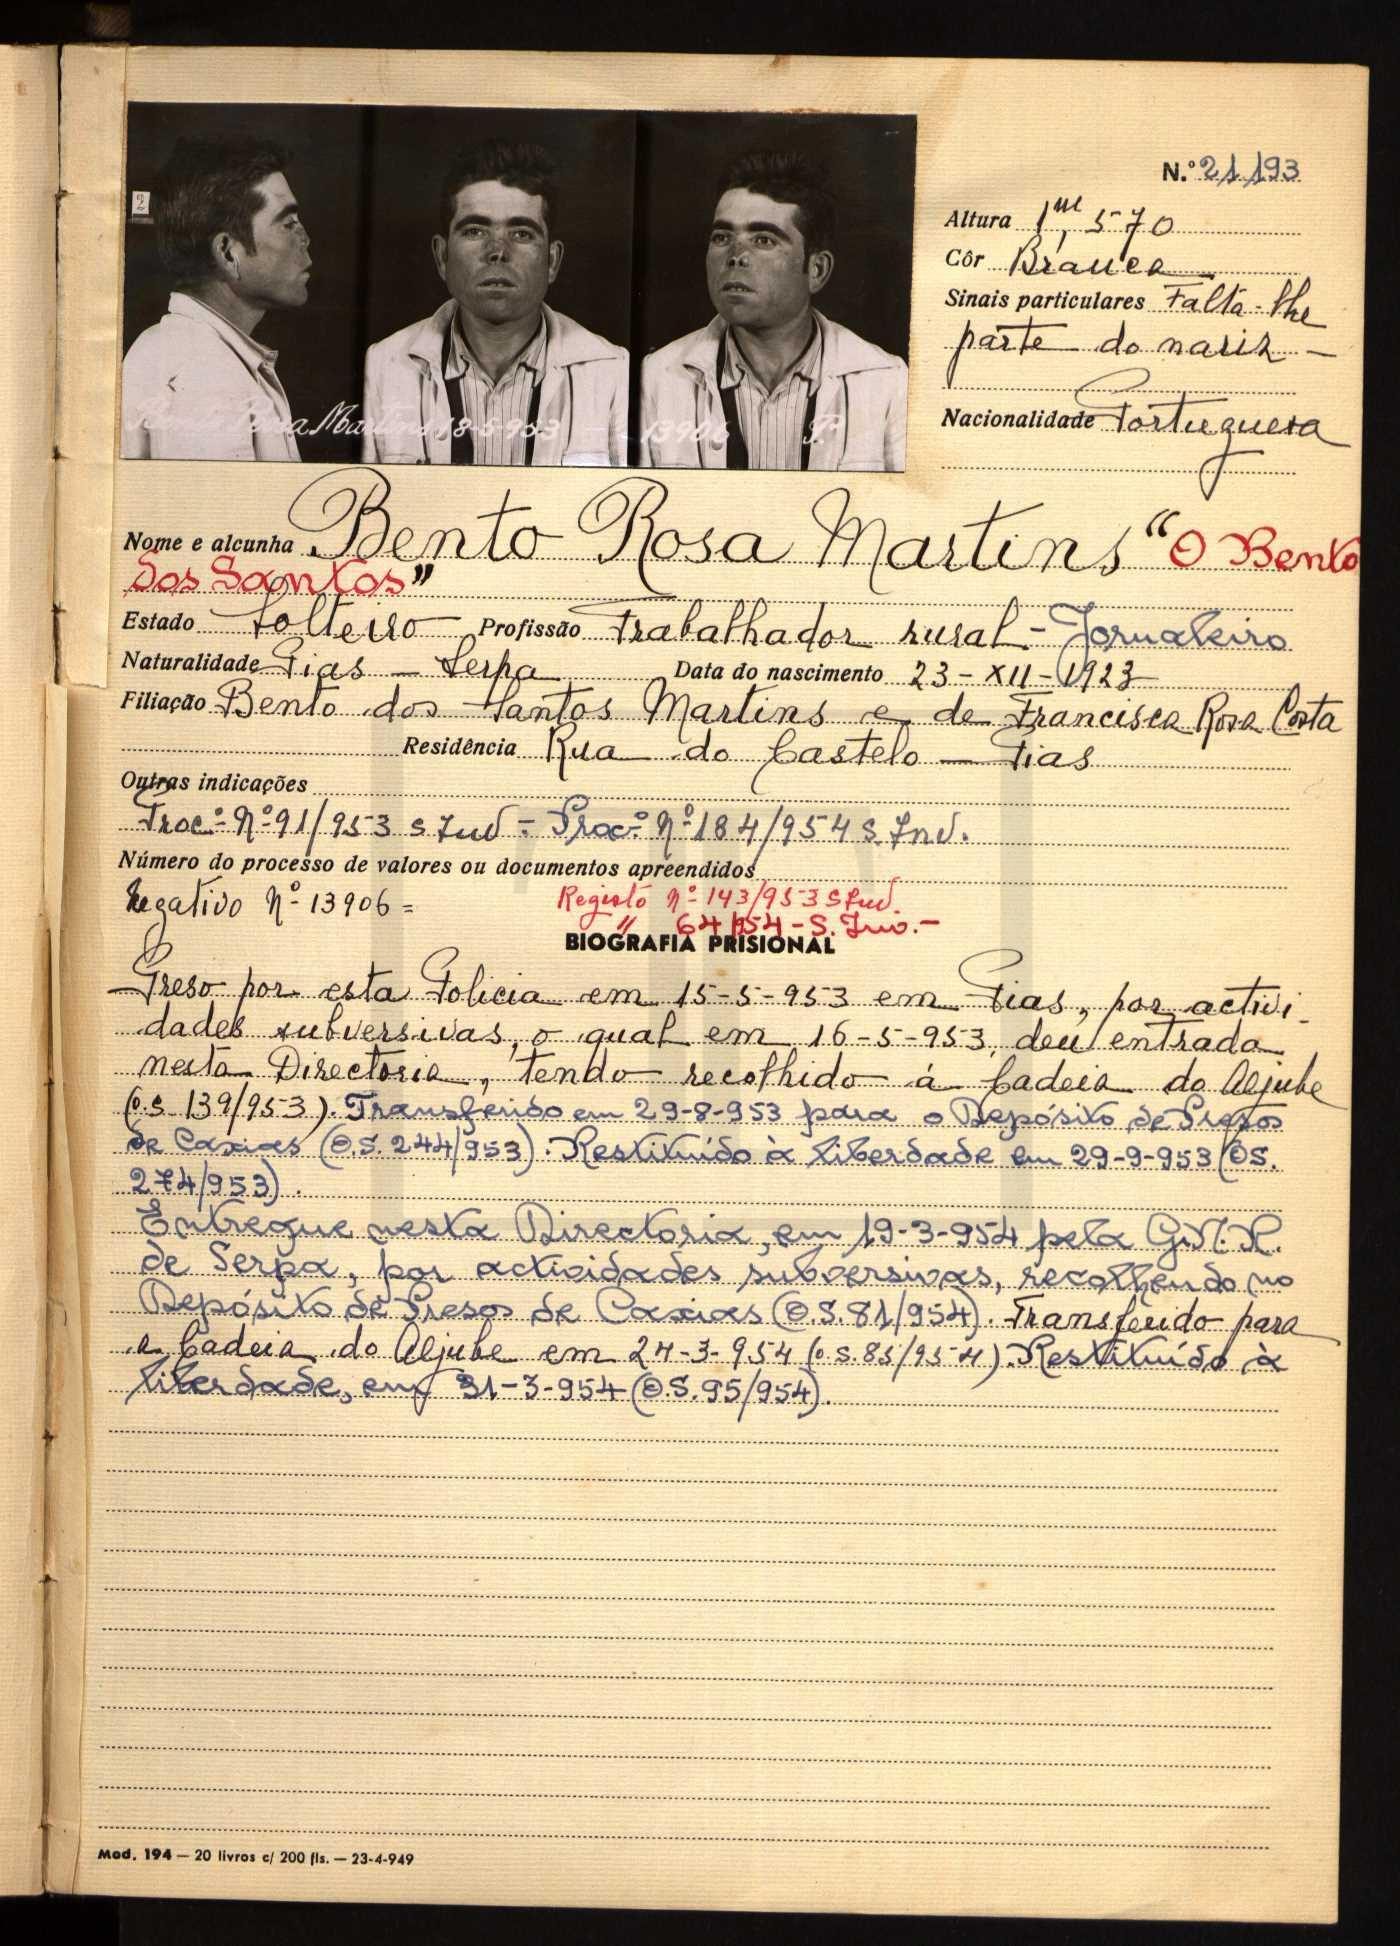 2
Rosa Martins 18-5-953 - 13906 P.
N.º 21193
Altura 1m,570
Côr Branca
Sinais particulares Falta-lhe
parte do nariz -
Nacionalidade Portuguesa
Nome e alcunha Bento Rosa Martins "O Bento
dos Santos"
Estado Solteiro Profissão Trabalhador rural - Jornaleiro
Naturalidade Pias - Serpa Data do nascimento 23-XII-1923
Filiação Bento dos Santos Martins e de Francisca Rosa Costa
Residência Rua do Castelo - Pias
Outras indicações
Proc.º Nº 91/953 S Inv - Proc.º Nº 184/954 S. Inv.
Número do processo de valores ou documentos apreendidos
Negativo Nº 13906 =
Registo Nº 143/953 S Inv.
" 64/954 - S. Inv. -
BIOGRAFIA PRISIONAL
Preso por esta Policia em 15-5-953 em Pias, por activi-
dades subversivas, o qual em 16-5-953, deu entrada
nesta Directoria, tendo recolhido á Cadeia do Aljube
(o.s 139/953). Transferido em 29-8-953 para o Depósito de Presos
de Caxias (O.S. 244/953). Restituído à liberdade em 29-9-953 (OS.
274/953).
Entregue nesta Directoria, em 19-3-954 pela G.N.R.
de Serpa, por actividades subversivas, recolhendo no
Depósito de Presos de Caxias (O.S. 81/954). Transferido para
a Cadeia do Aljube em 24-3-954 (o.s. 85/954). Restituído à
liberdade, em 31-3-954 (O.S. 95/954).
Mod. 194 — 20 livros c/ 200 fls. — 23-4-949